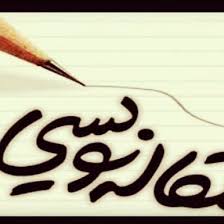 مقاله نويسي